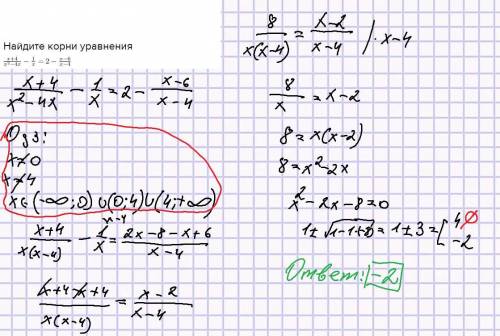 Найдите корни уравнения
(x+4)/(x²-4x) - 1/x = 2 - (x-6)/(x-4)
Одз:
x≠0
x≠4
x∈(-∞;0)∪(0;4)∪(4;+∞)
(x+4)/(x(x-4)) - 1/x^(x-4) = (2x-8-x+6)/(x-4)
(x+4-x+4)/(x(x-4)) = (x-2)/(x-4)
8/(x(x-4)) = (x-2)/(x-4) /·x-4
8/x = x-2
8=x(x-2)
8=x²-2x
x²-2x-8=0
1±√(1-1·(-8)) = 1±3 = [4 ∅
-2
Ответ: -2